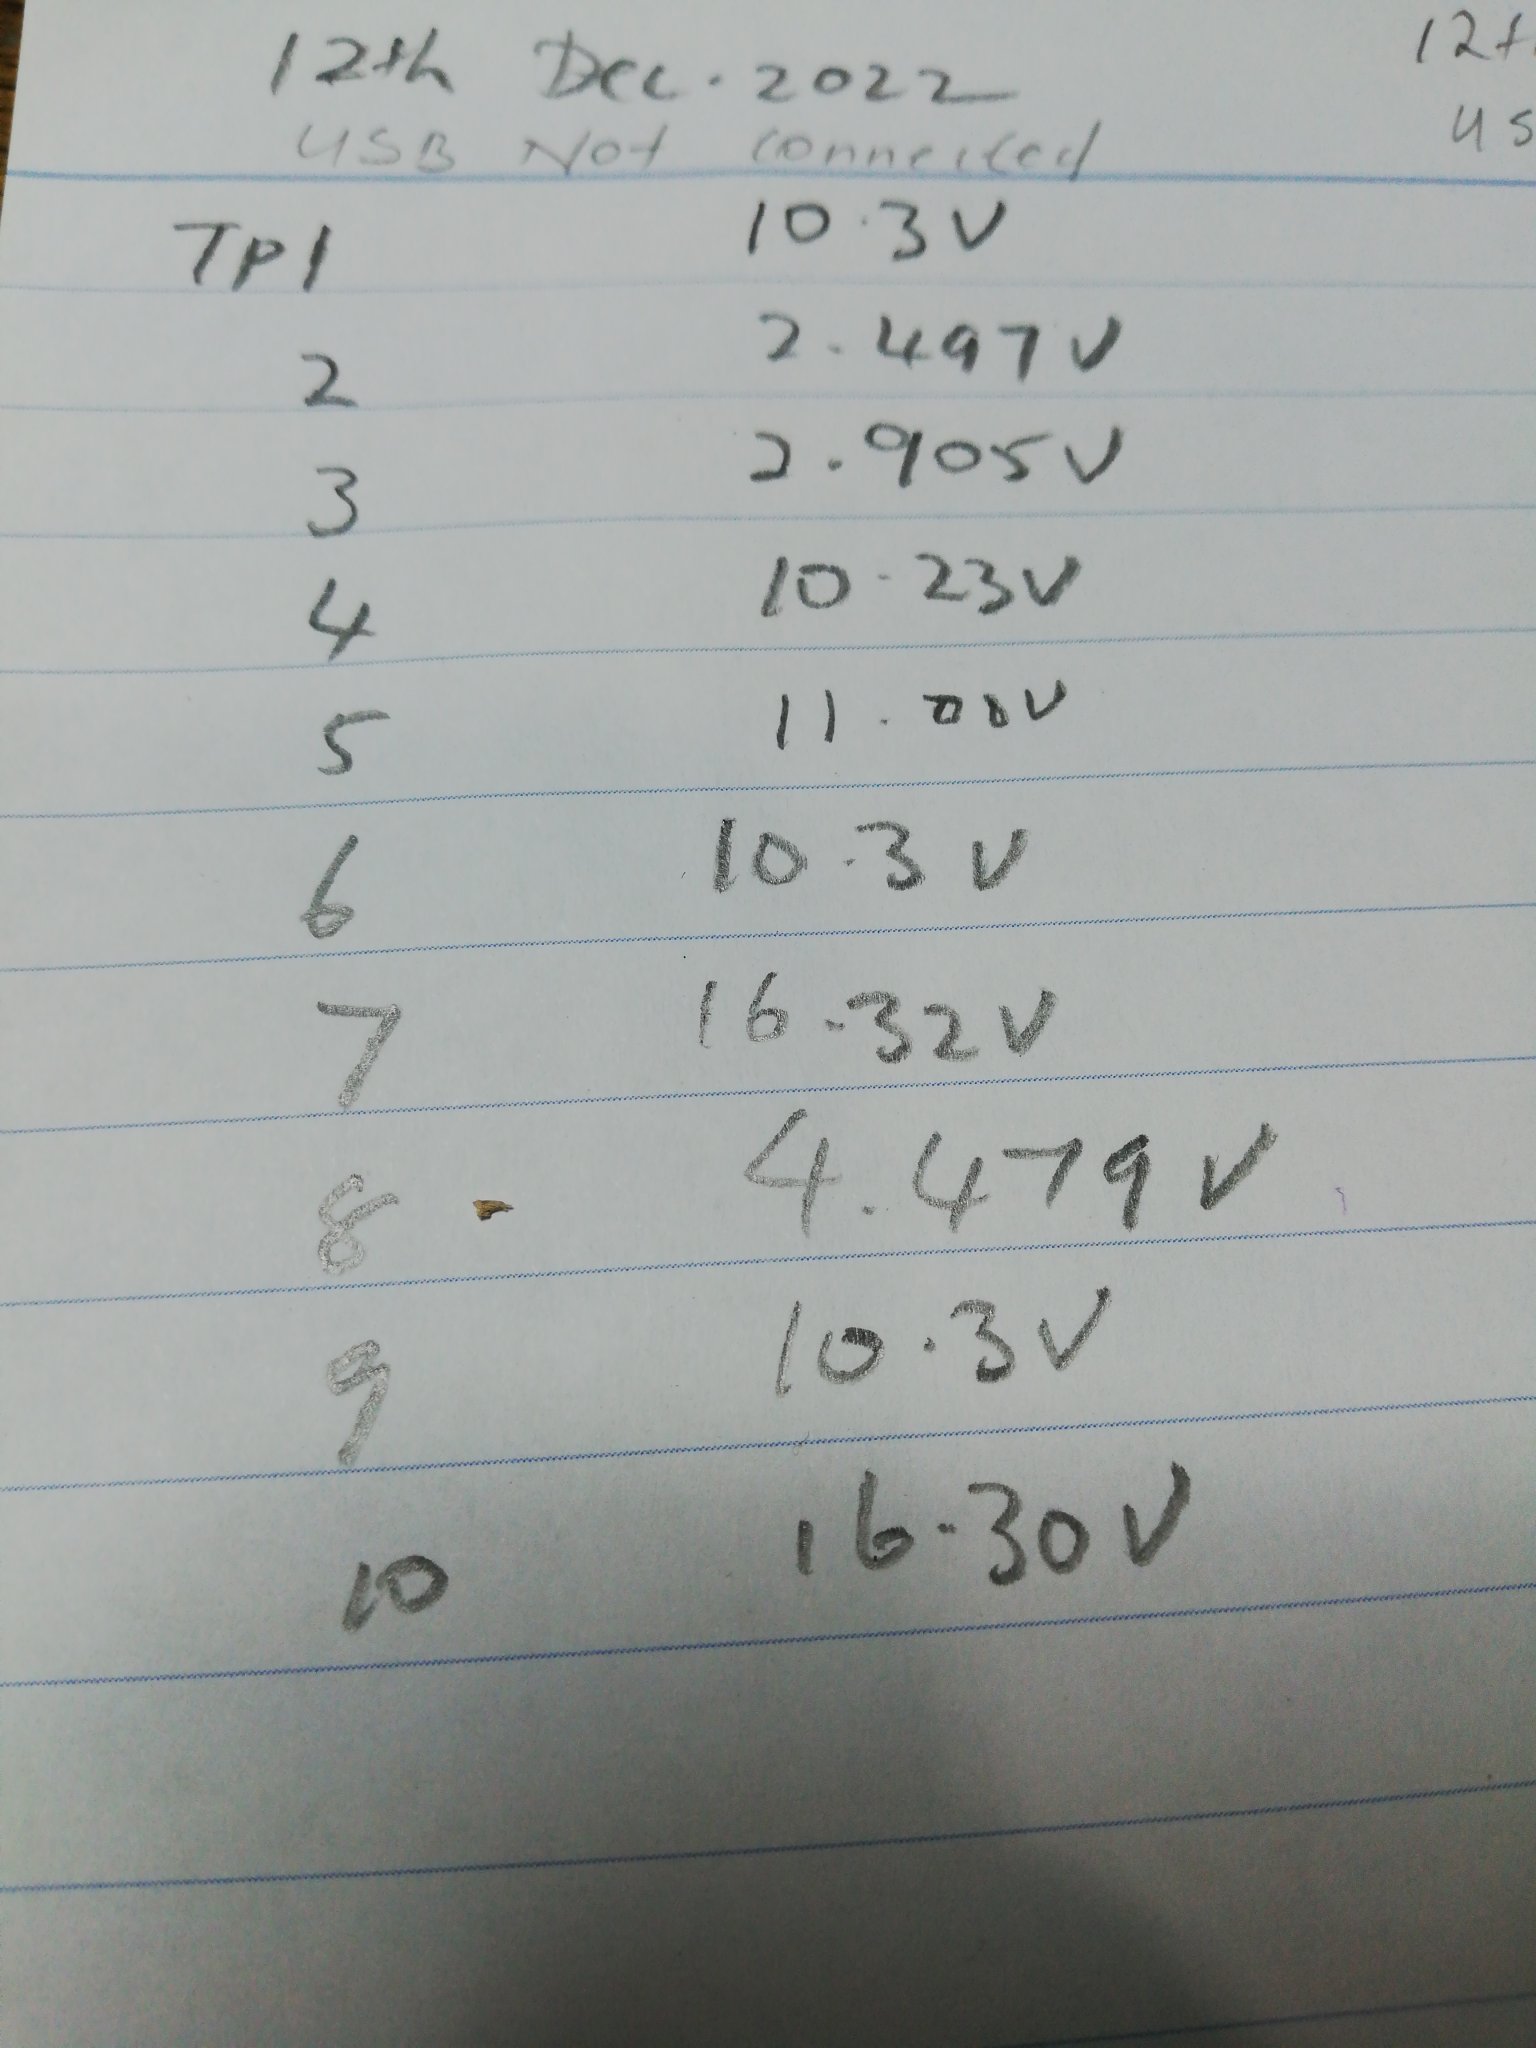 12th Dec. 2022
USB Not Connected
TP1 10.3V
2 2.497V
3 2.905V
4 10.23V
5 11.00V
6 10.3V
7 16.32V
8 4.479V
9 10.3V
10 16.30V
12th
US